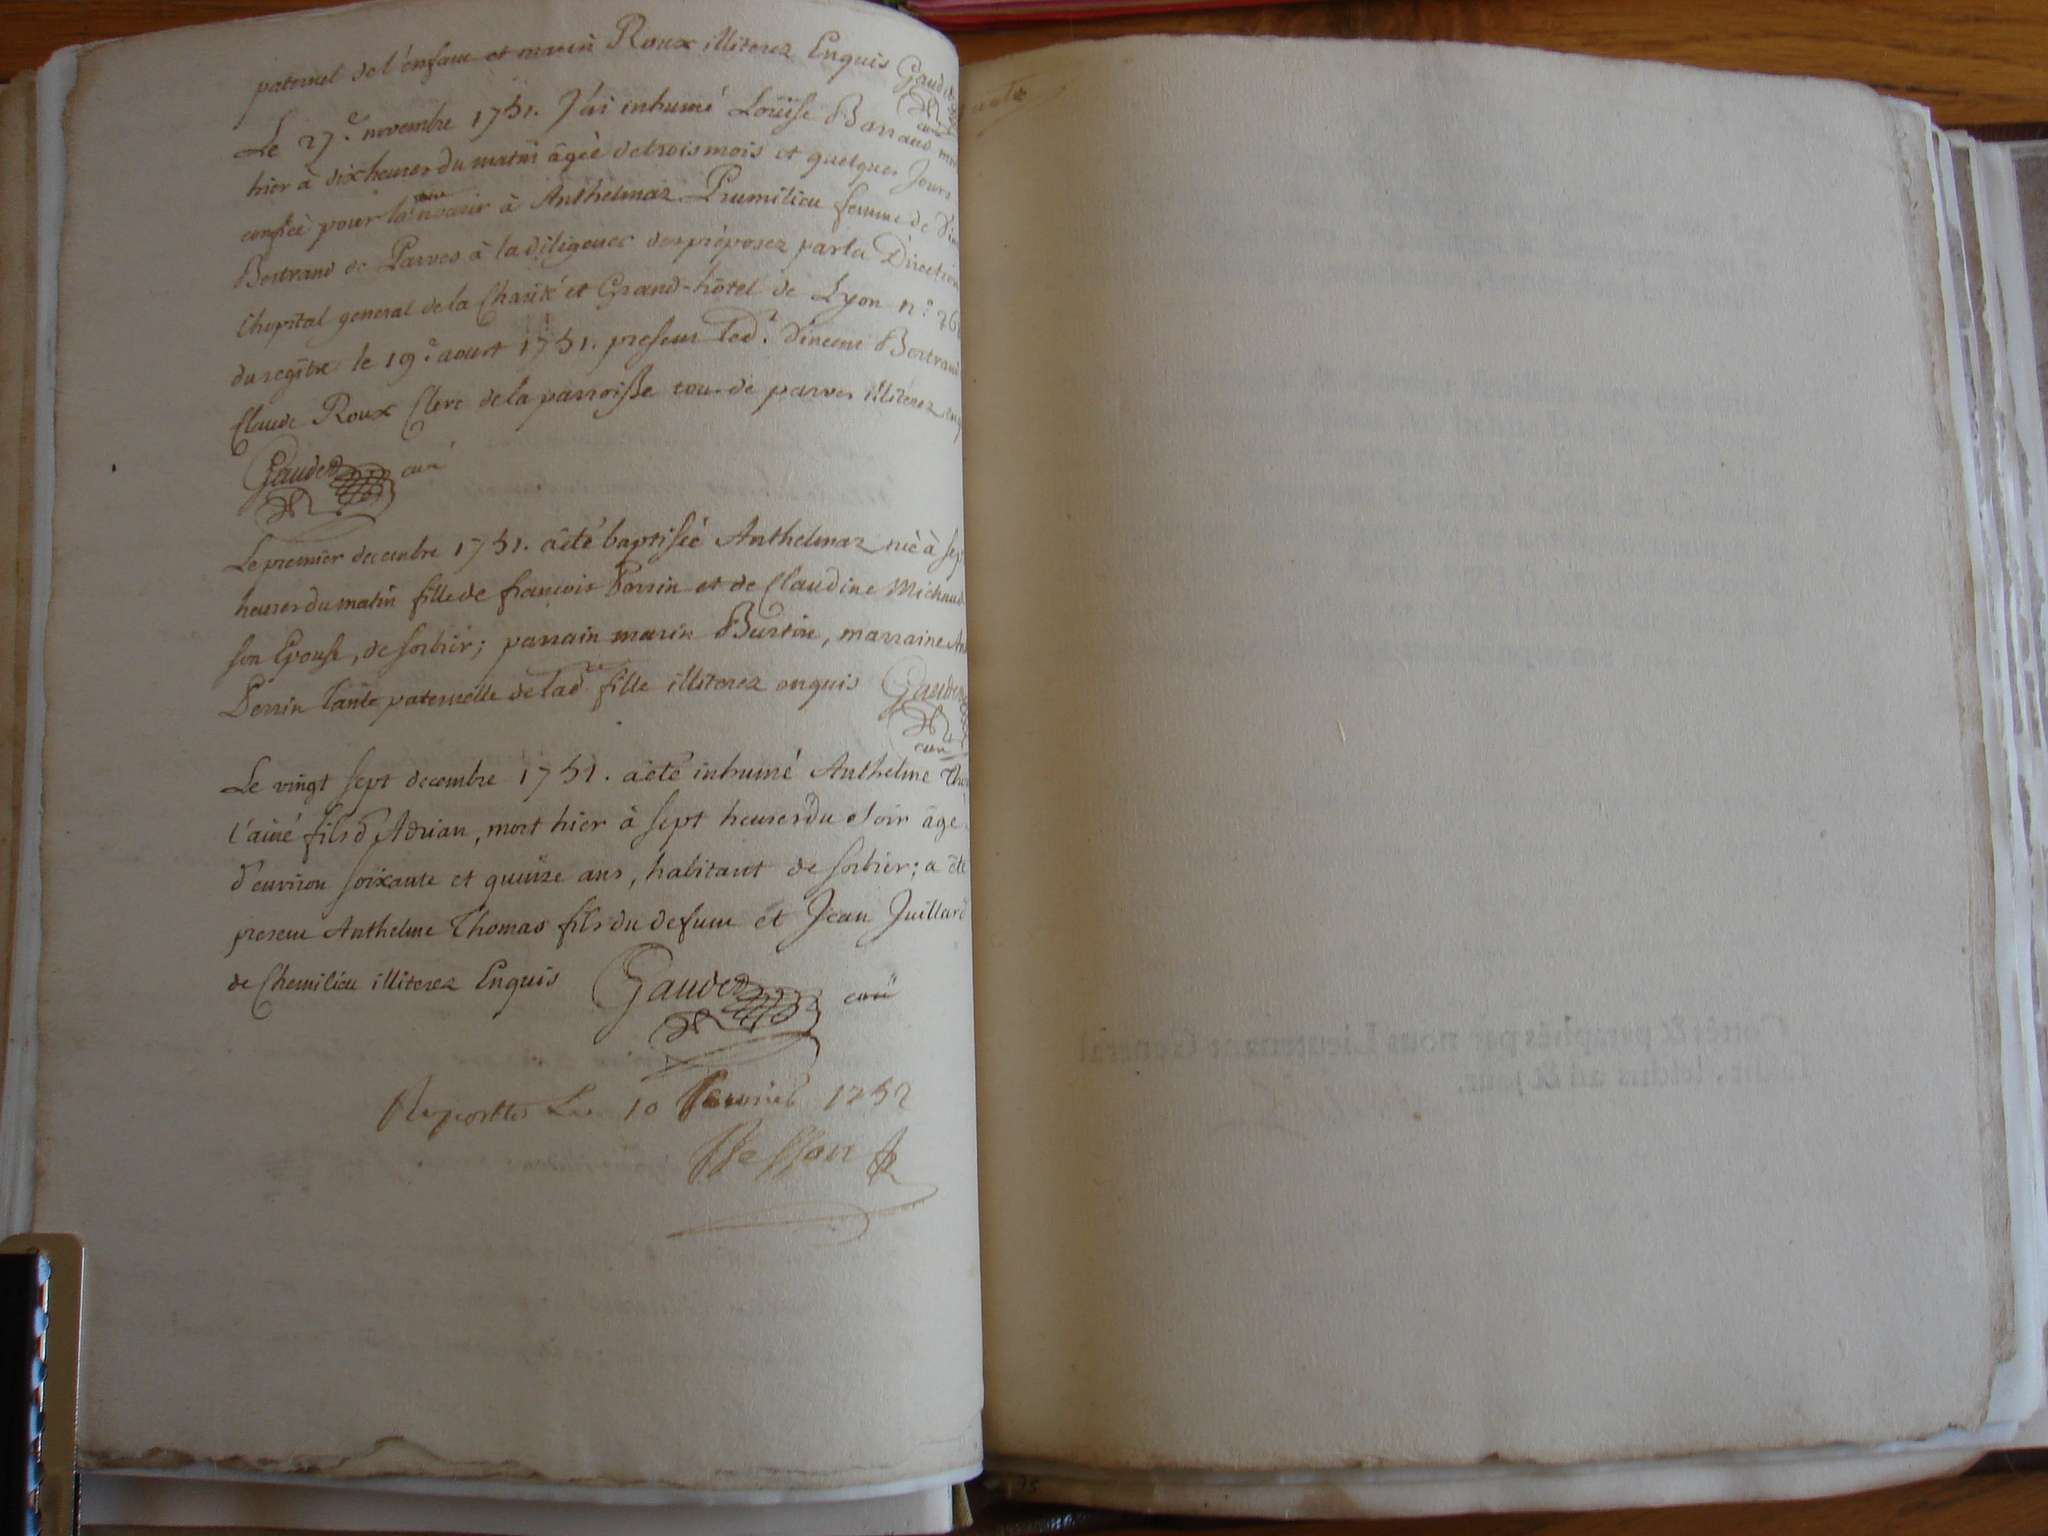 paternel de l'enfant et marin Roux illiterez Enquis Gaudet
curé
Le 27.e novembre 1751. J'ai inhumé Loüise Barraud
hier à dix heures du matin âgée de trois mois et quelques Jours
confiée pour la nourir à Anthelmaz Prumilieu femme de
Bertrand de Parves à la diligence des préposez par la Direction
l'hopital general de la Charité et Grand-hôtel de Lyon n.o
du regître le 19.e aoust 1751. presens led.t Vincent Bertrand
Claude Roux Clerc de la parroisse tous de parves illiterez
Gaudet curé
Le premier decembre 1751. a été baptisée Anthelmaz née à
heures du matin fille de françois Perrin et de Claudine Michaud
son Epouse, de sorbier; parrain marin Burtin, marraine
Perrin tante paternelle de lad.e fille illiterez enquis Gaudet
curé
Le vingt sept decembre 1751. a été inhumé Anthelme
l'ainé fils d'Adrian, mort hier à sept heures du soir âgé
d'environ soixante et quinze ans, habitant de sorbier; a été
presens Anthelme Thomas fils du defunt et Jean Juillard
de Chemilieu illiterez Enquis Gaudet curé
Reporttés Le 10 1752
Besson